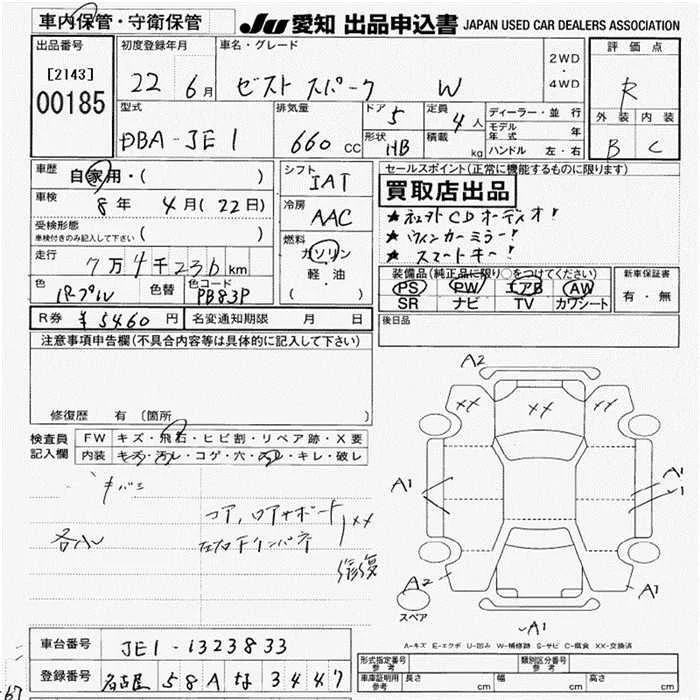 車内保管・守衛保管
JU 愛知 出品申込書 JAPAN USED CAR DEALERS ASSOCIATION
出品番号 初度登録年月 車名・グレード 2WD・4WD 評価点
[2143] 00185 22年 6月 ゼスト スパーク W R
型式 排気量 ドア 5 定員 4人 ディーラー・並行 外装 内装
DBA-JE1 660cc 形状 HB 積載 kg モデル年式 年 B C
ハンドル 左・右
車歴 自家用・( ) シフト IAT セールスポイント(正常に機能するものに限ります)
買取店出品
車検 8年 4月(22日) 冷房 AAC ★ CDオーディオ!
受検形態 車検付きのみ記入して下さい ( ) ★ウィンカーミラー!
燃料 ガソリン 軽油 ( ) ★スマートキー!
走行 7万4千236km 装備品(純正品に限り○をつけてください) 新車保証書
色 パープル 色替 色コード PB83P PS PW エアB AW 有・無
SR ナビ TV カワシート
R券 ¥5460円 名変通知期限 月 日 後日品
注意事項申告欄(不具合内容等は具体的に記入して下さい)
修復歴 有 (箇所 )
検査員記入欄 FW キズ・飛石・ヒビ割・リペア跡・X要
内装 キズ・汚レ・コゲ・穴・スレ・キレ・破レ
A2
XX XX XX
A1 A1
A1
コア,ロアサポート XX
各小 左右Fインパネ 修復
A2 A1
スペア
A1
A-キズ E-エクボ U-凹み W-補修跡 S-サビ C-腐食 XX-交換済
車台番号 JE1-1323833
登録番号 名古屋 58A な 3447
型式指定番号 参考 類別区分番号 参考
車庫証明用 参考 長さ cm 幅 cm 高さ cm
67